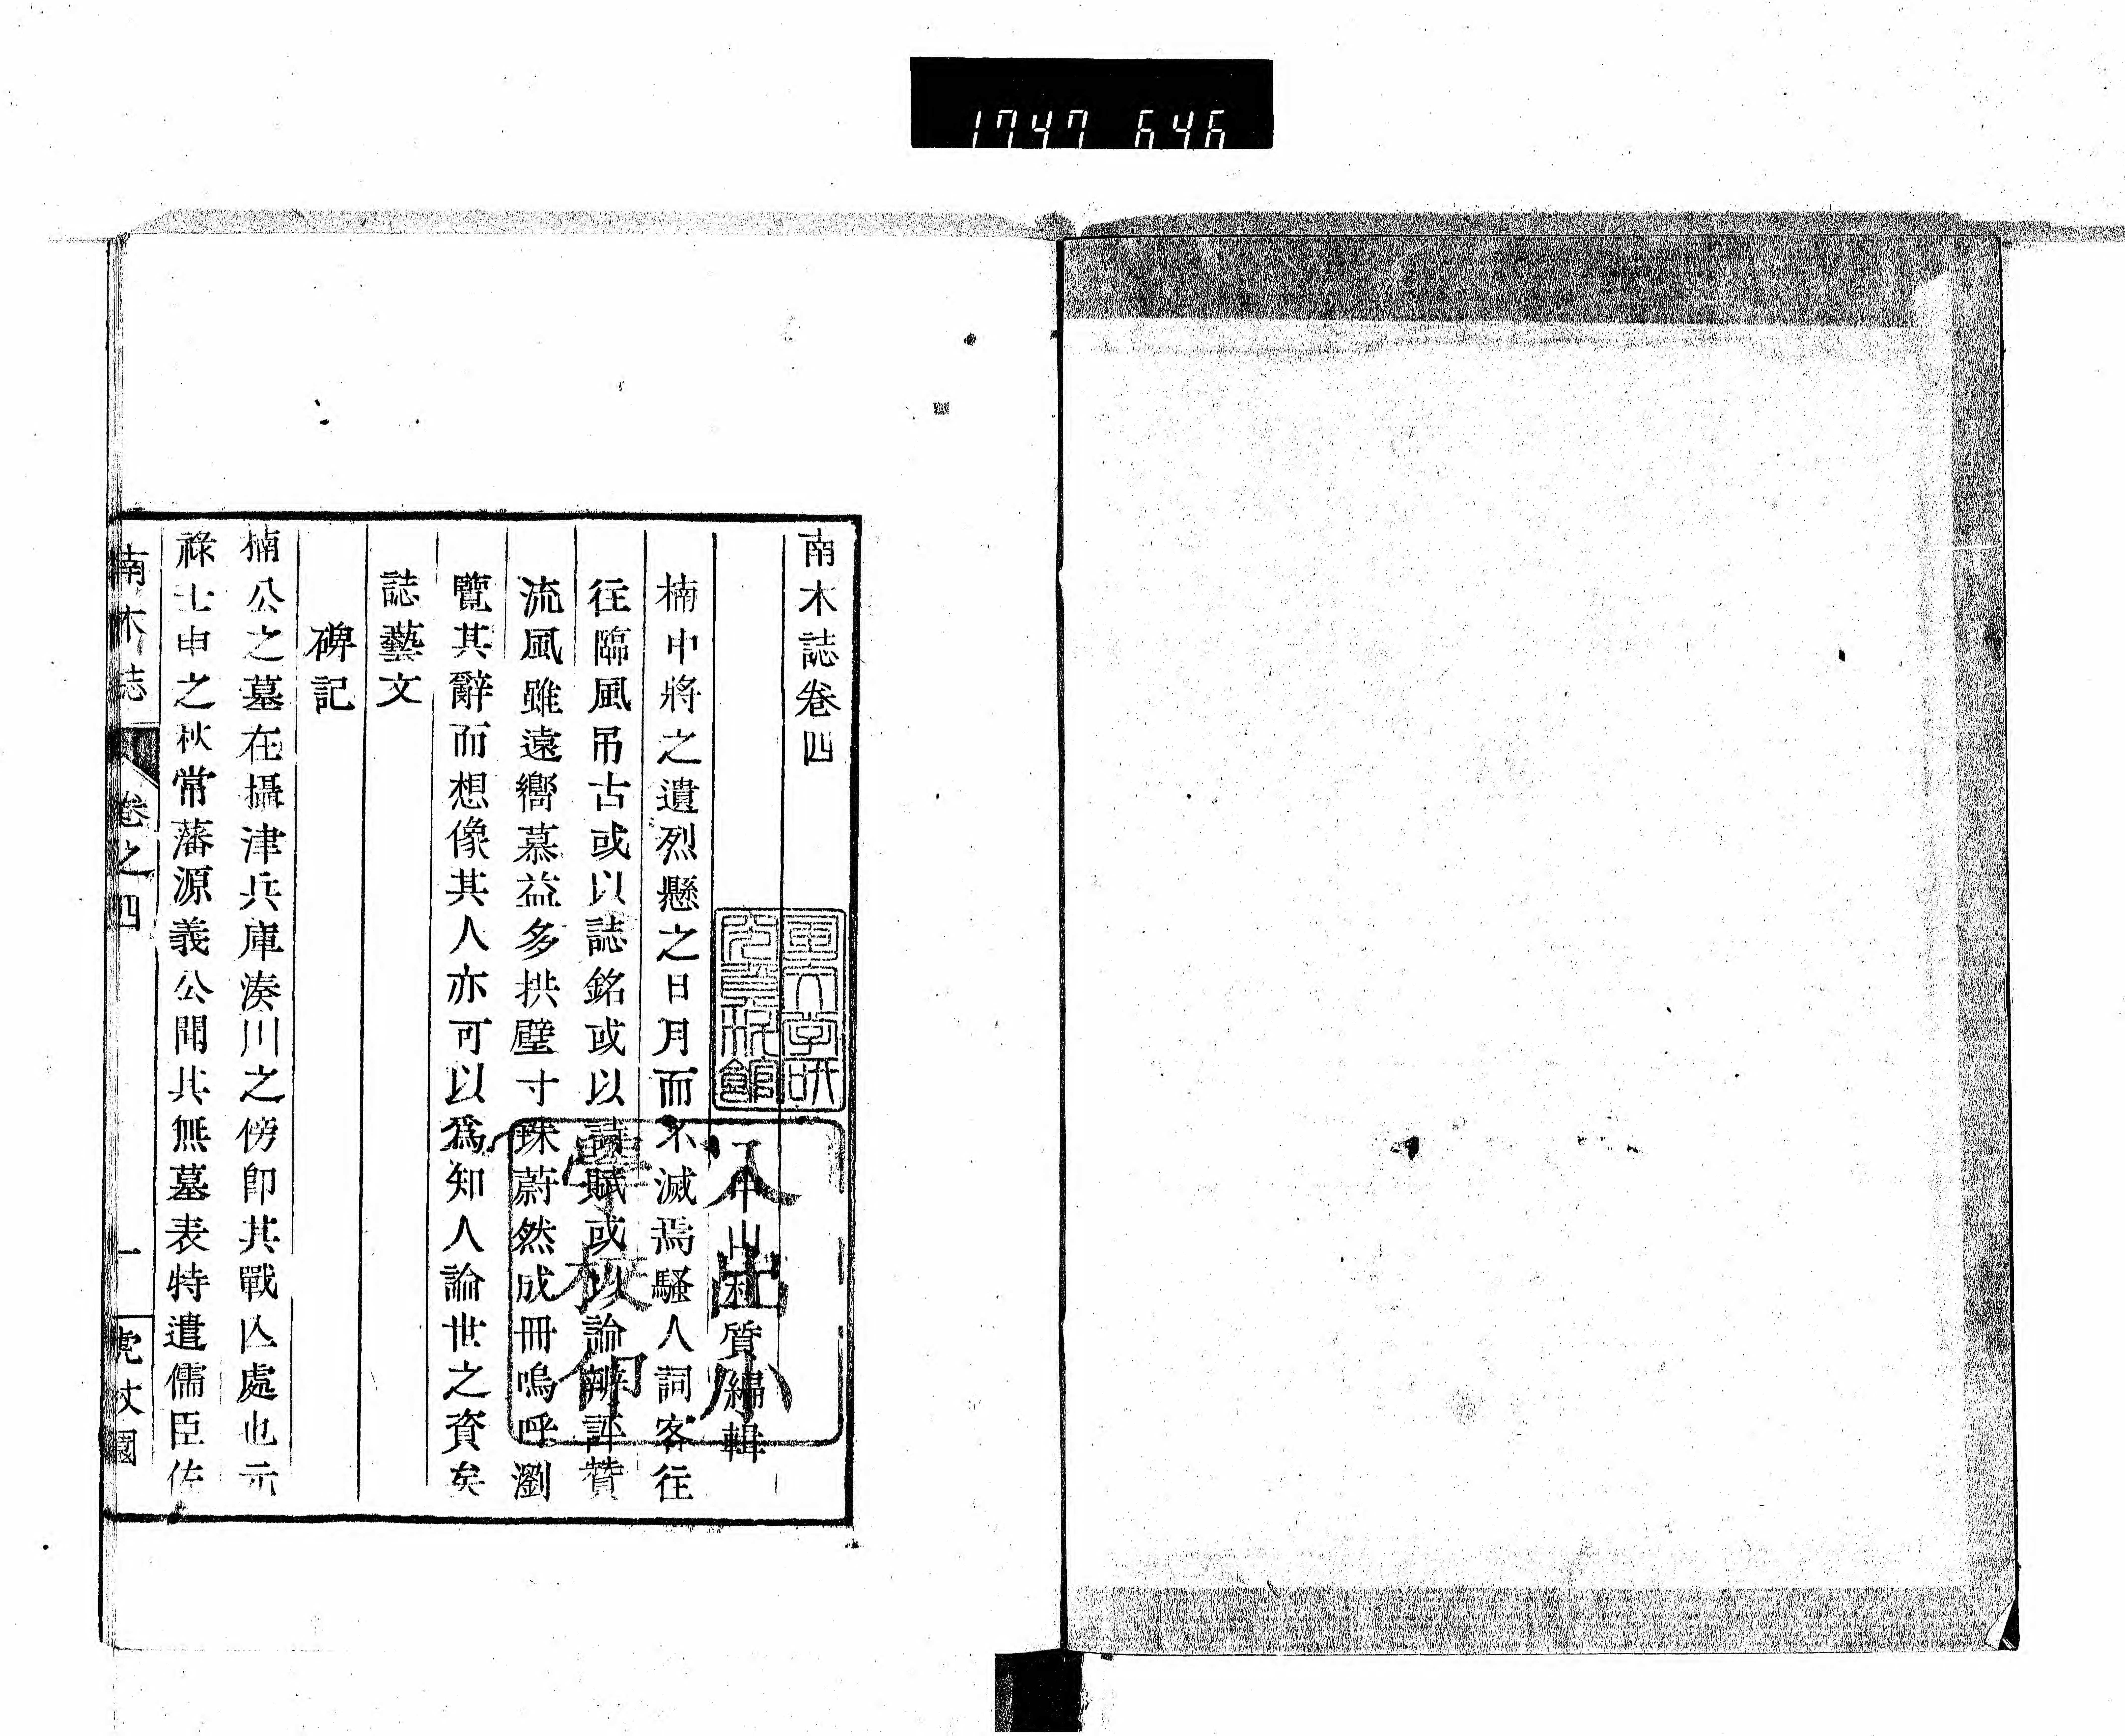 1747 646
南木誌卷四
中山利質編輯
楠中將之遺烈懸之日月而不滅焉騷人詞客往
往臨風吊古或以誌銘或以詩賦或以論辨評贊
流風雖遠嚮慕益多拱璧寸珠蔚然成冊嗚呼瀏
覽其辭而想像其人亦可以爲知人論世之資矣
誌藝文
碑記
楠公之墓在攝津兵庫湊川之傍卽其戰亾處也元
祿壬申之秋常藩源義公聞其無墓表特遣儒臣佐
南木誌 卷之四 一 虎杖園
小學校印